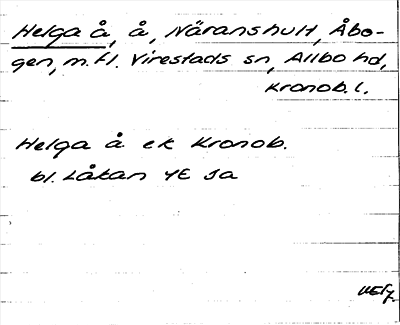 Helga å, å, Näranshult, Åbo-
gen, m.fl. Virestads sn, Allbo hd,
Kronob. l.
Helga å ek Kronob.
bl. Låkan 4E Sa